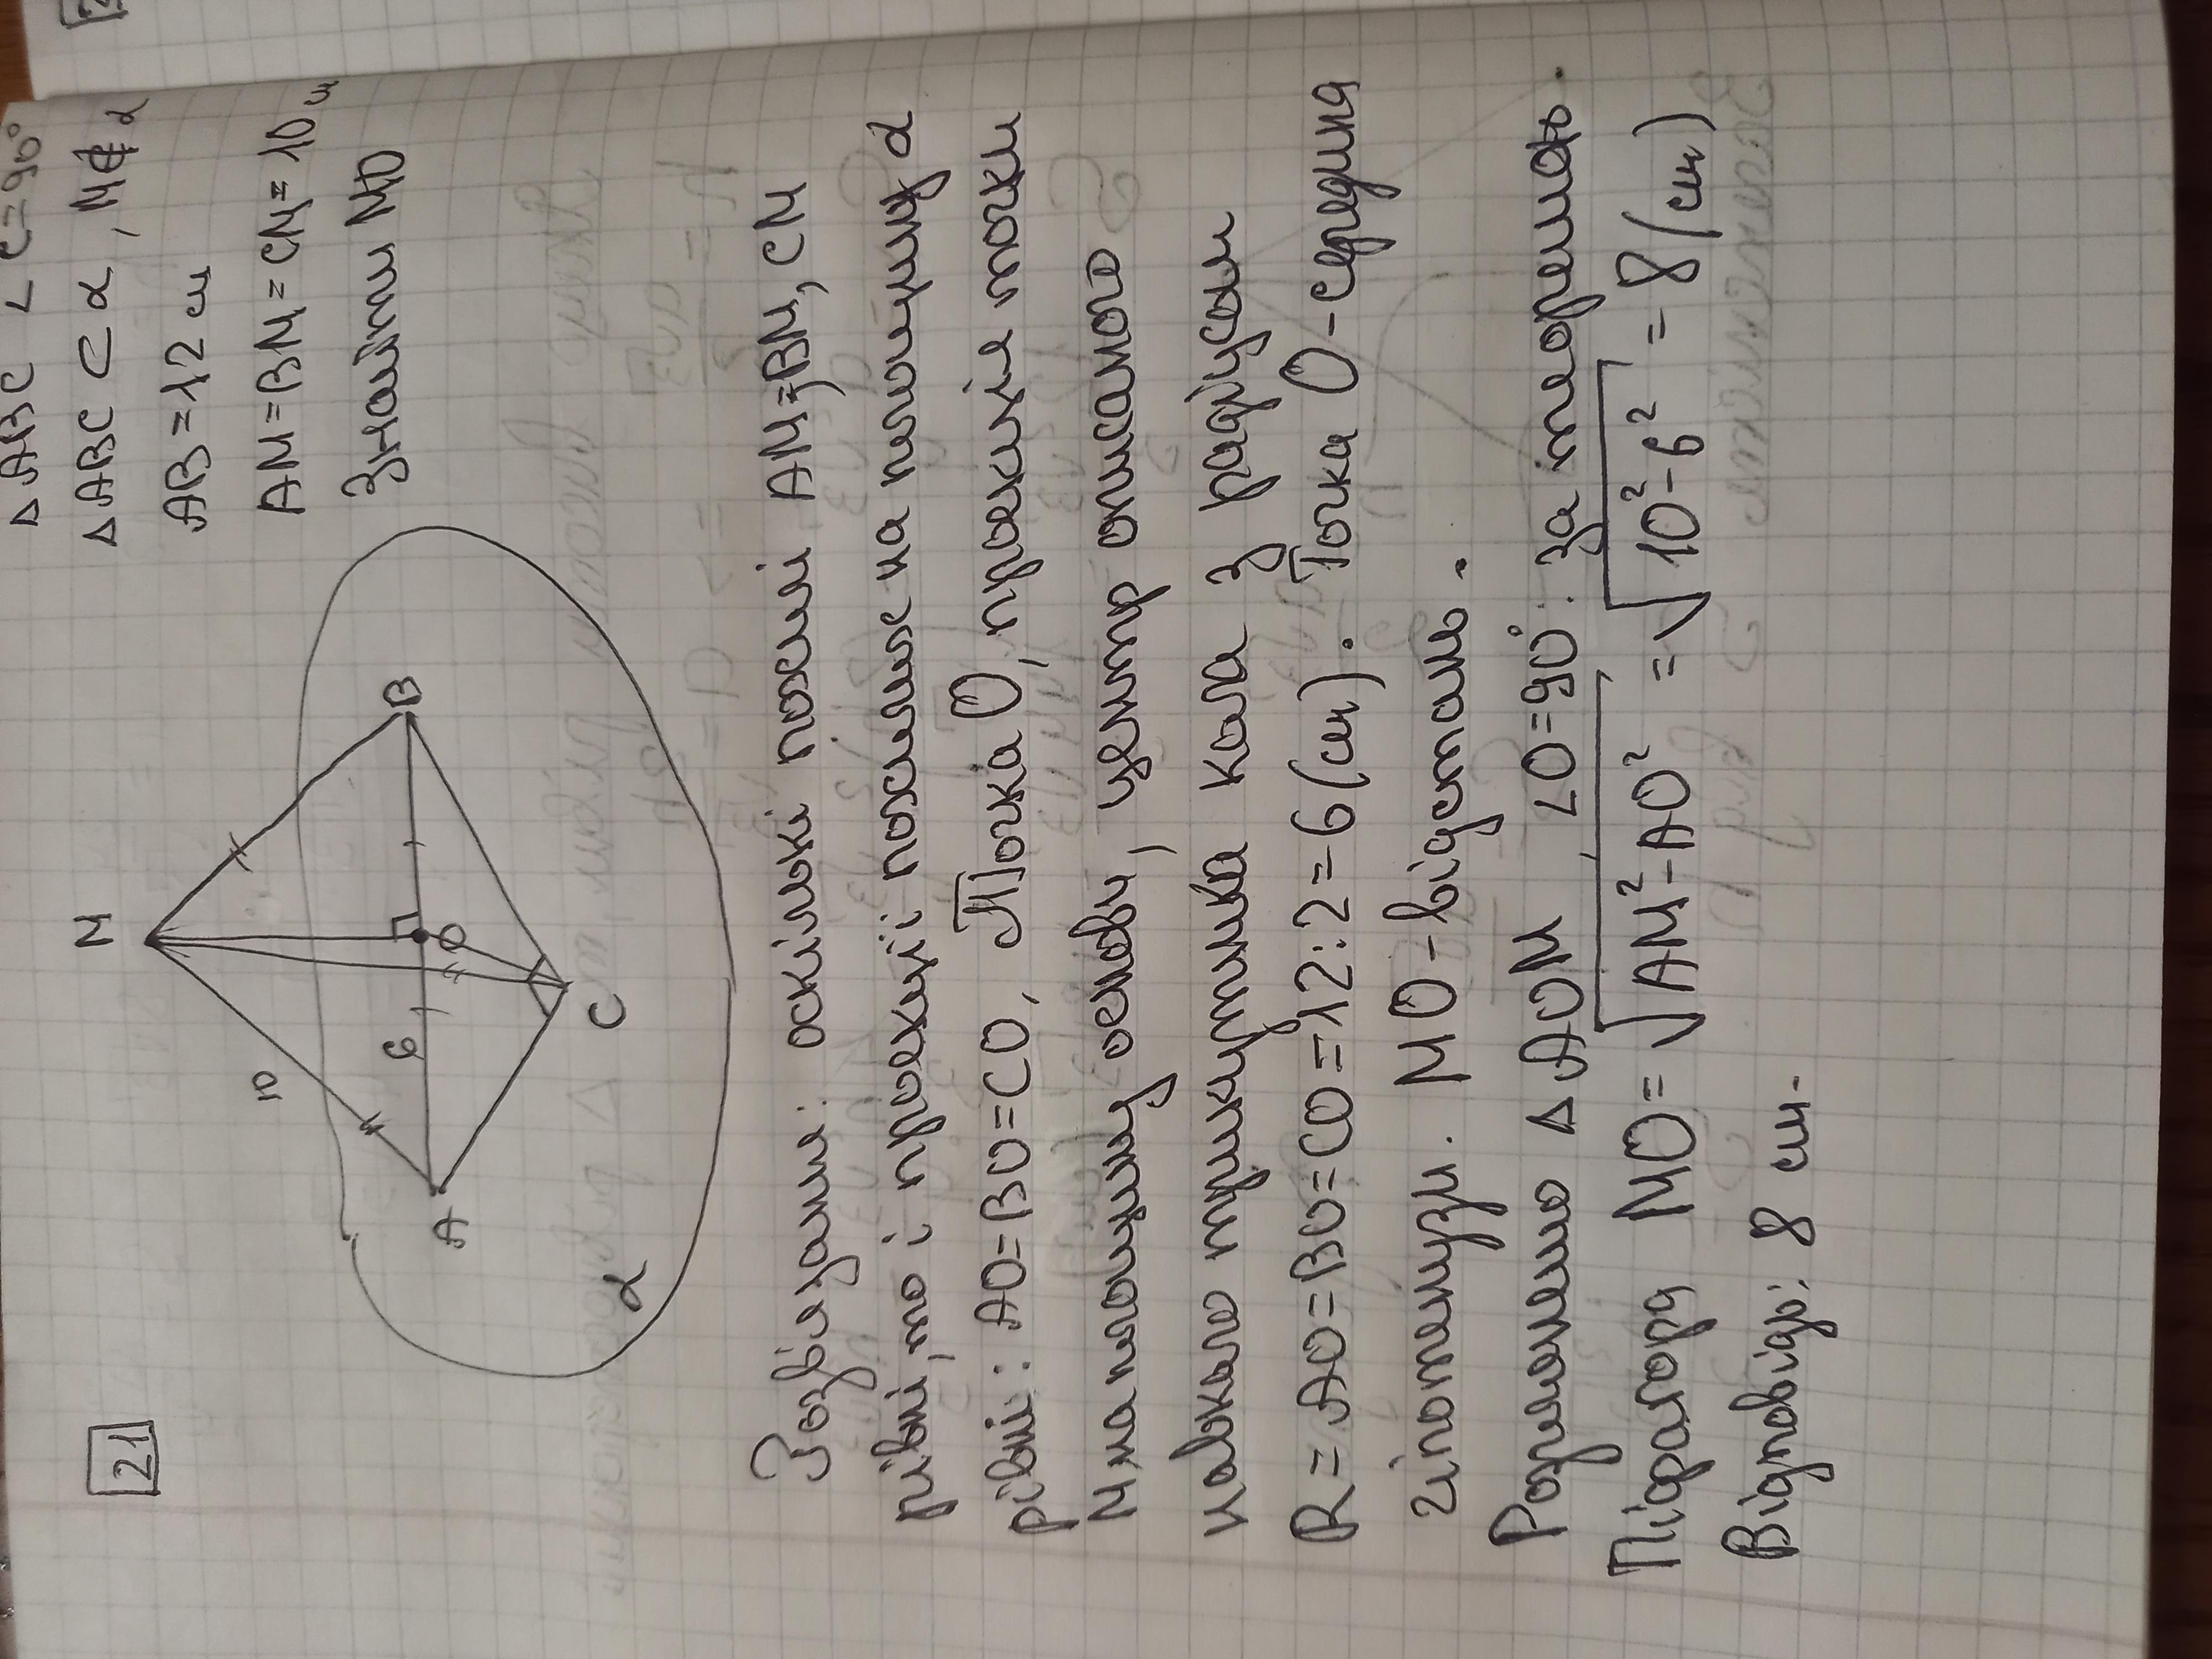 21
△ ABC ∠ C=90°
△ ABC ⊂ α, M∉ α
AB = 12 см
AM = BM = CM = 10 см
Знайти MO
M
10
6
A
B
O
C
α
Розв'язання: оскільки похилі AM=BM, CM
рівні, то і проекції похилих на площину α
рівні: AO=BO=CO, Точка O, проекція точки
M на площину основи, центр описаного
навколо трикутника кола з радіусом
R = AO=BO=CO=12:2=6(см). Точка O-середина
гіпотенузи. MO-відстань.
Розглянемо △ AOM, ∠O=90°: за теоремою
Піфагора MO = √AM²-AO² = √10²-6² = 8(см)
Відповідь: 8 см.